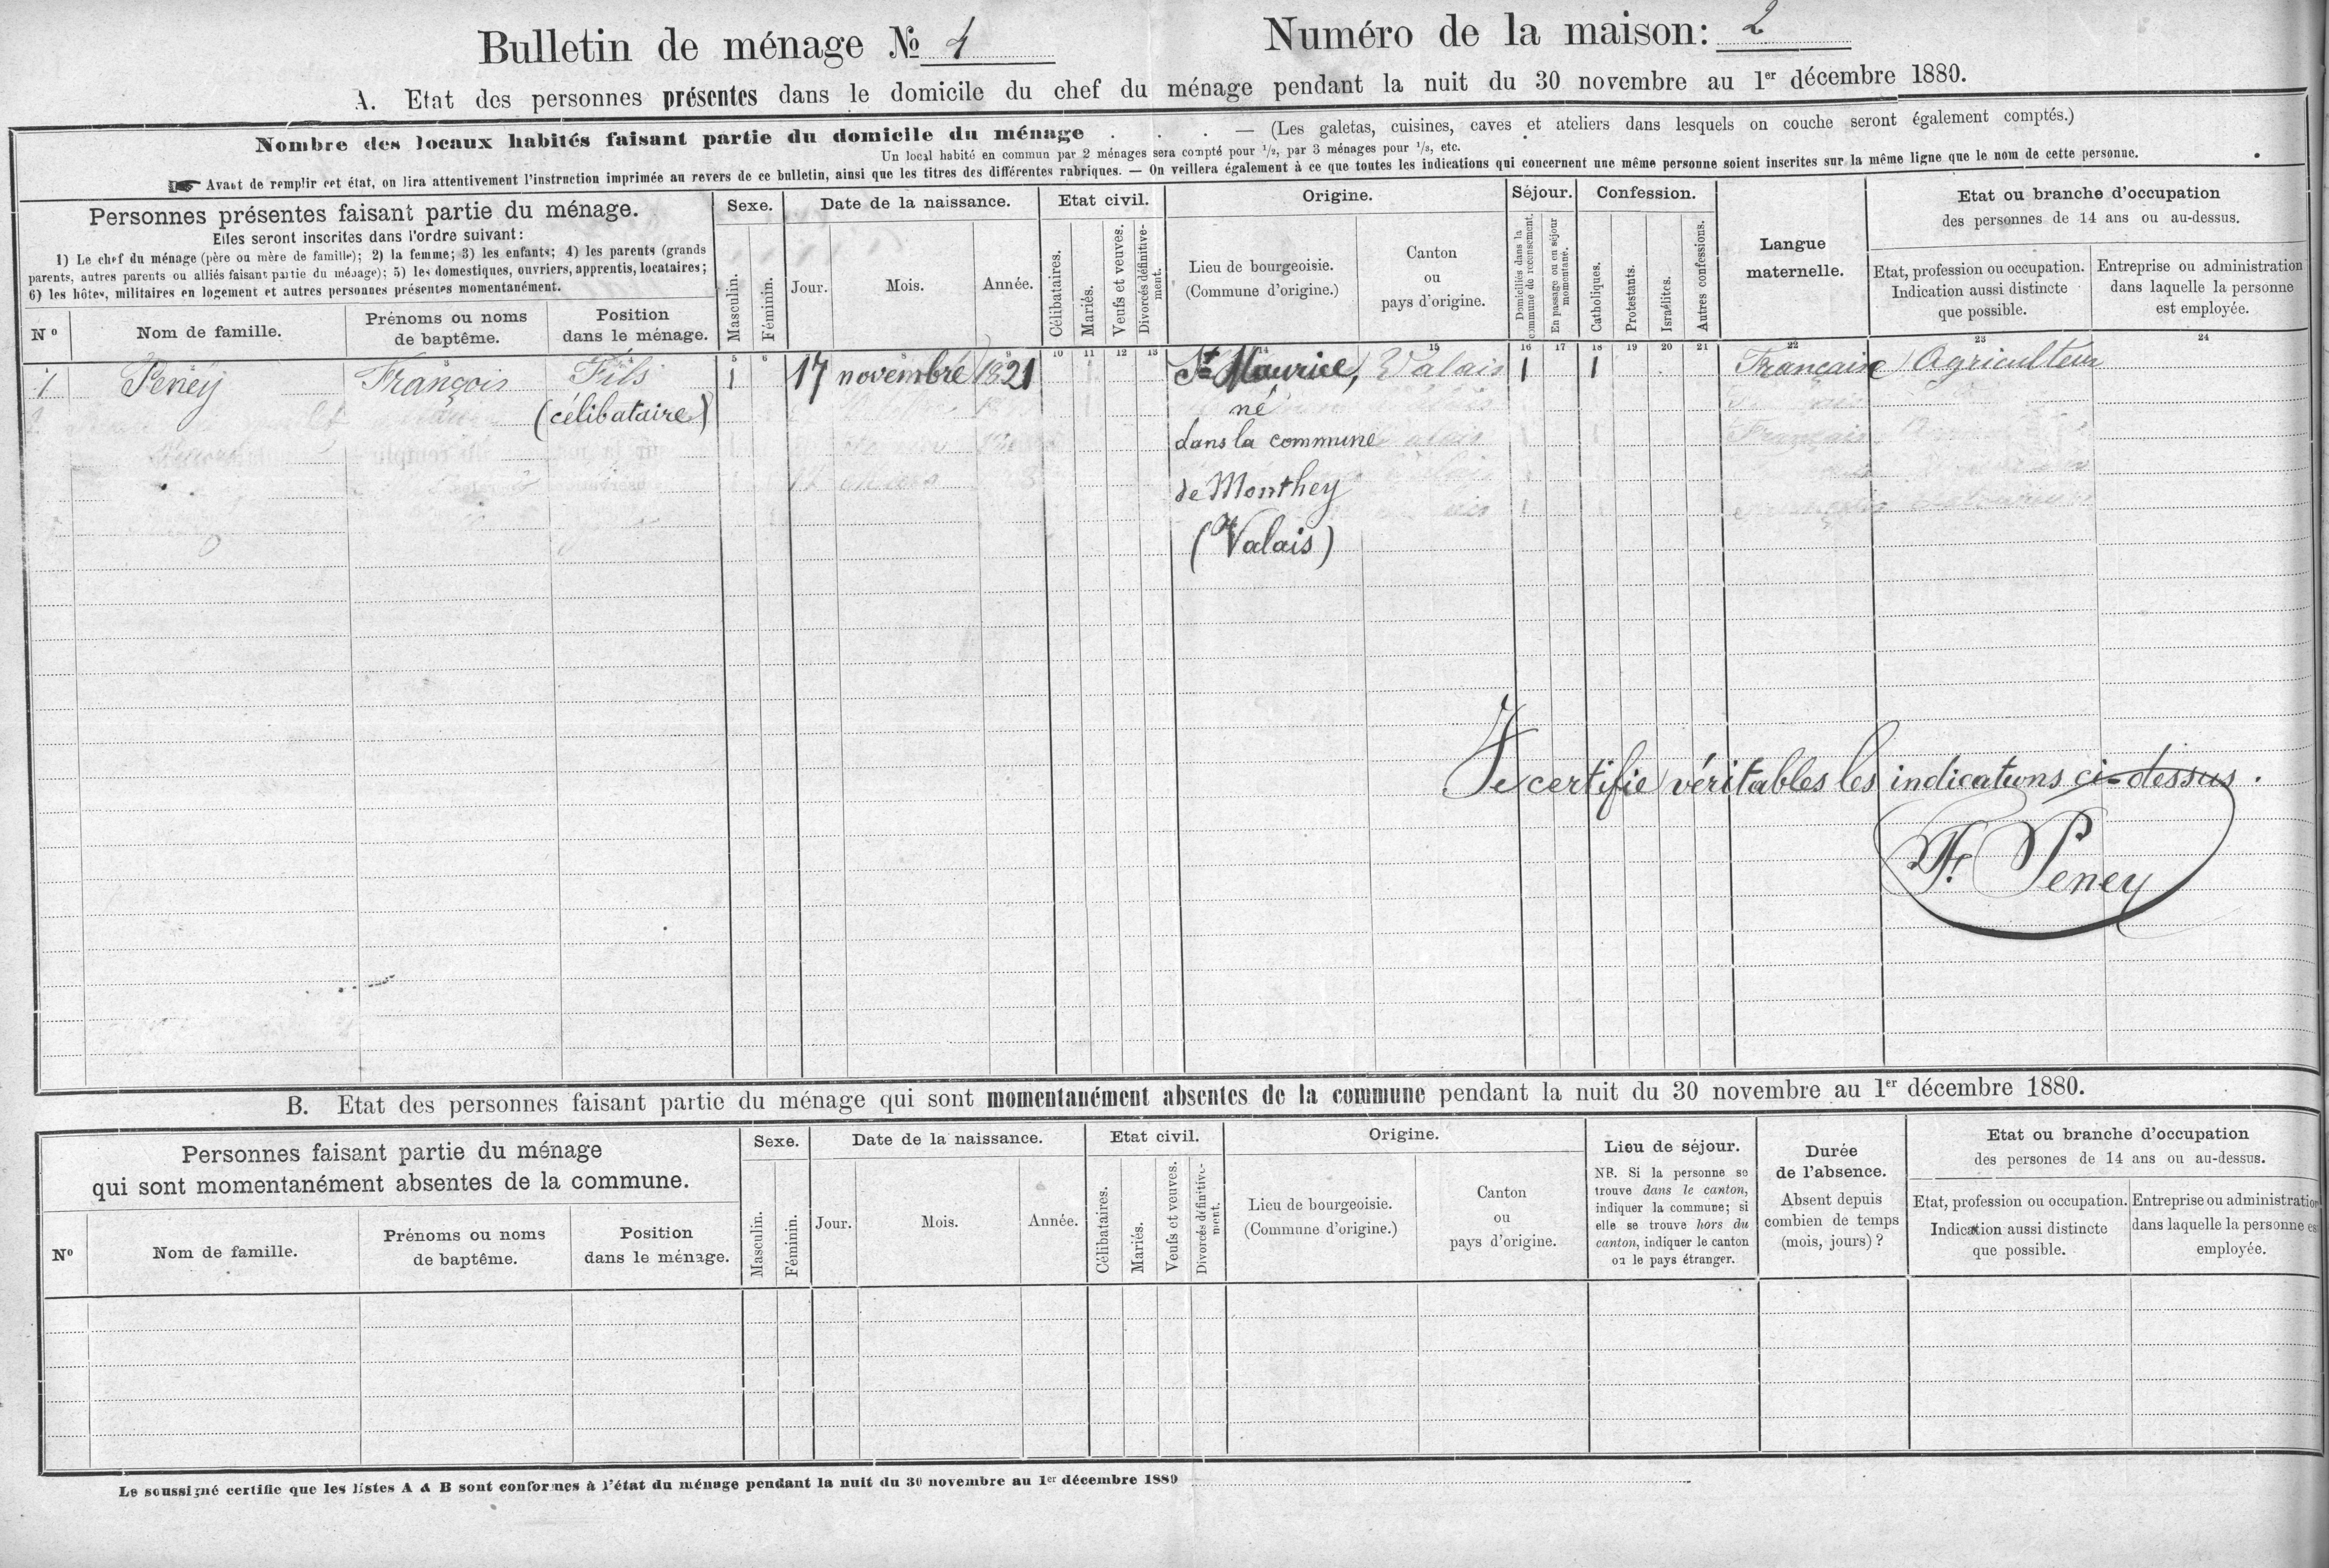 Bulletin de ménage No 1
Numéro de la maison: 2
A. Etat des personnes présentes dans le domicile du chef du ménage pendant la nuit du 30 novembre au 1er décembre 1880.
Nombre des locaux habités faisant partie du domicile du ménage . . . — (Les galetas, cuisines, caves et ateliers dans lesquels on couche seront également comptés.)
Un local habité en commun par 2 ménages sera compté pour 1/2, par 3 ménages pour 1/3, etc.
Avant de remplir cet état, on lira attentivement l'instruction imprimée au revers de ce bulletin, ainsi que les titres des différentes rubriques. — On veillera également à ce que toutes les indications qui concernent une même personne soient inscrites sur la même ligne que le nom de cette personne.
Personnes présentes faisant partie du ménage.
Elles seront inscrites dans l'ordre suivant:
1) Le chef du ménage (père ou mère de famille); 2) la femme; 3) les enfants; 4) les parents (grands
parents, autres parents ou alliés faisant partie du ménage); 5) les domestiques, ouvriers, apprentis, locataires;
6) les hôtes, militaires en logement et autres personnes présentes momentanément.
No
Nom de famille.
Prénoms ou noms
de baptême.
Position
dans le ménage.
Sexe.
Masculin.
Féminin.
Date de la naissance.
Jour.
Mois.
Année.
Etat civil.
Célibataires.
Mariés.
Veufs et veuves.
Divorcés définitive-
ment.
Origine.
Lieu de bourgeoisie.
(Commune d'origine.)
Canton
ou
pays d'origine.
Séjour.
Domiciliés dans la
commune de recensement.
En passage ou en séjour
momentané.
Confession.
Catholiques.
Protestants.
Israélites.
Autres confessions.
Langue
maternelle.
Etat ou branche d'occupation
des personnes de 14 ans ou au-dessus.
Etat, profession ou occupation.
Indication aussi distincte
que possible.
Entreprise ou administration
dans laquelle la personne
est employée.
3 4 5 6 8 9 10 11 12 13 14 15 16 17 18 19 20 21 22 23 24
1 Peney François Fils 1 17 novembre 1821 St Maurice, Valais 1 1 Française Agriculteur
(célibataire) né
dans la commune
de Monthey
(Valais)
Je certifie véritables les indications ci-dessus.
F. Peney
B. Etat des personnes faisant partie du ménage qui sont momentanément absentes de la commune pendant la nuit du 30 novembre au 1er décembre 1880.
Personnes faisant partie du ménage
qui sont momentanément absentes de la commune.
No
Nom de famille.
Prénoms ou noms
de baptême.
Position
dans le ménage.
Sexe.
Masculin.
Féminin.
Date de la naissance.
Jour.
Mois.
Année.
Etat civil.
Célibataires.
Mariés.
Veufs et veuves.
Divorcés définitive-
ment.
Origine.
Lieu de bourgeoisie.
(Commune d'origine.)
Canton
ou
pays d'origine.
Lieu de séjour.
NB. Si la personne se
trouve dans le canton,
indiquer la commune; si
elle se trouve hors du
canton, indiquer le canton
ou le pays étranger.
Durée
de l'absence.
Absent depuis
combien de temps
(mois, jours)?
Etat ou branche d'occupation
des persones de 14 ans ou au-dessus.
Etat, profession ou occupation.
Indication aussi distincte
que possible.
Entreprise ou administration
dans laquelle la personne est
employée.
Le soussigné certifie que les listes A & B sont conformes à l'état du ménage pendant la nuit du 30 novembre au 1er décembre 1880